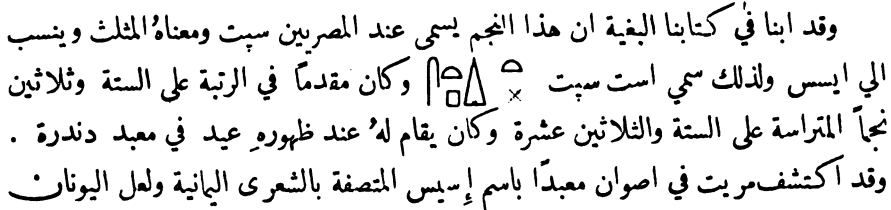 وقد ابنا في كتابنا البغية ان هذا النجم يسمى عند المصريين سپت ومعناهُ المثلث وينسب
الي ايسس ولذلك سمي است سپت وكان مقدماً في الرتبة على الستة وثلاثين
نجماً المتراسة على الستة والثلاثين عشرة وكان يقام لهُ عند ظهورهِ عيد في معبد دندرة .
وقد اكتشف مريت في اصوان معبدًا باسم إِسيس المتصفة بالشعرى اليمانية ولعل اليونان